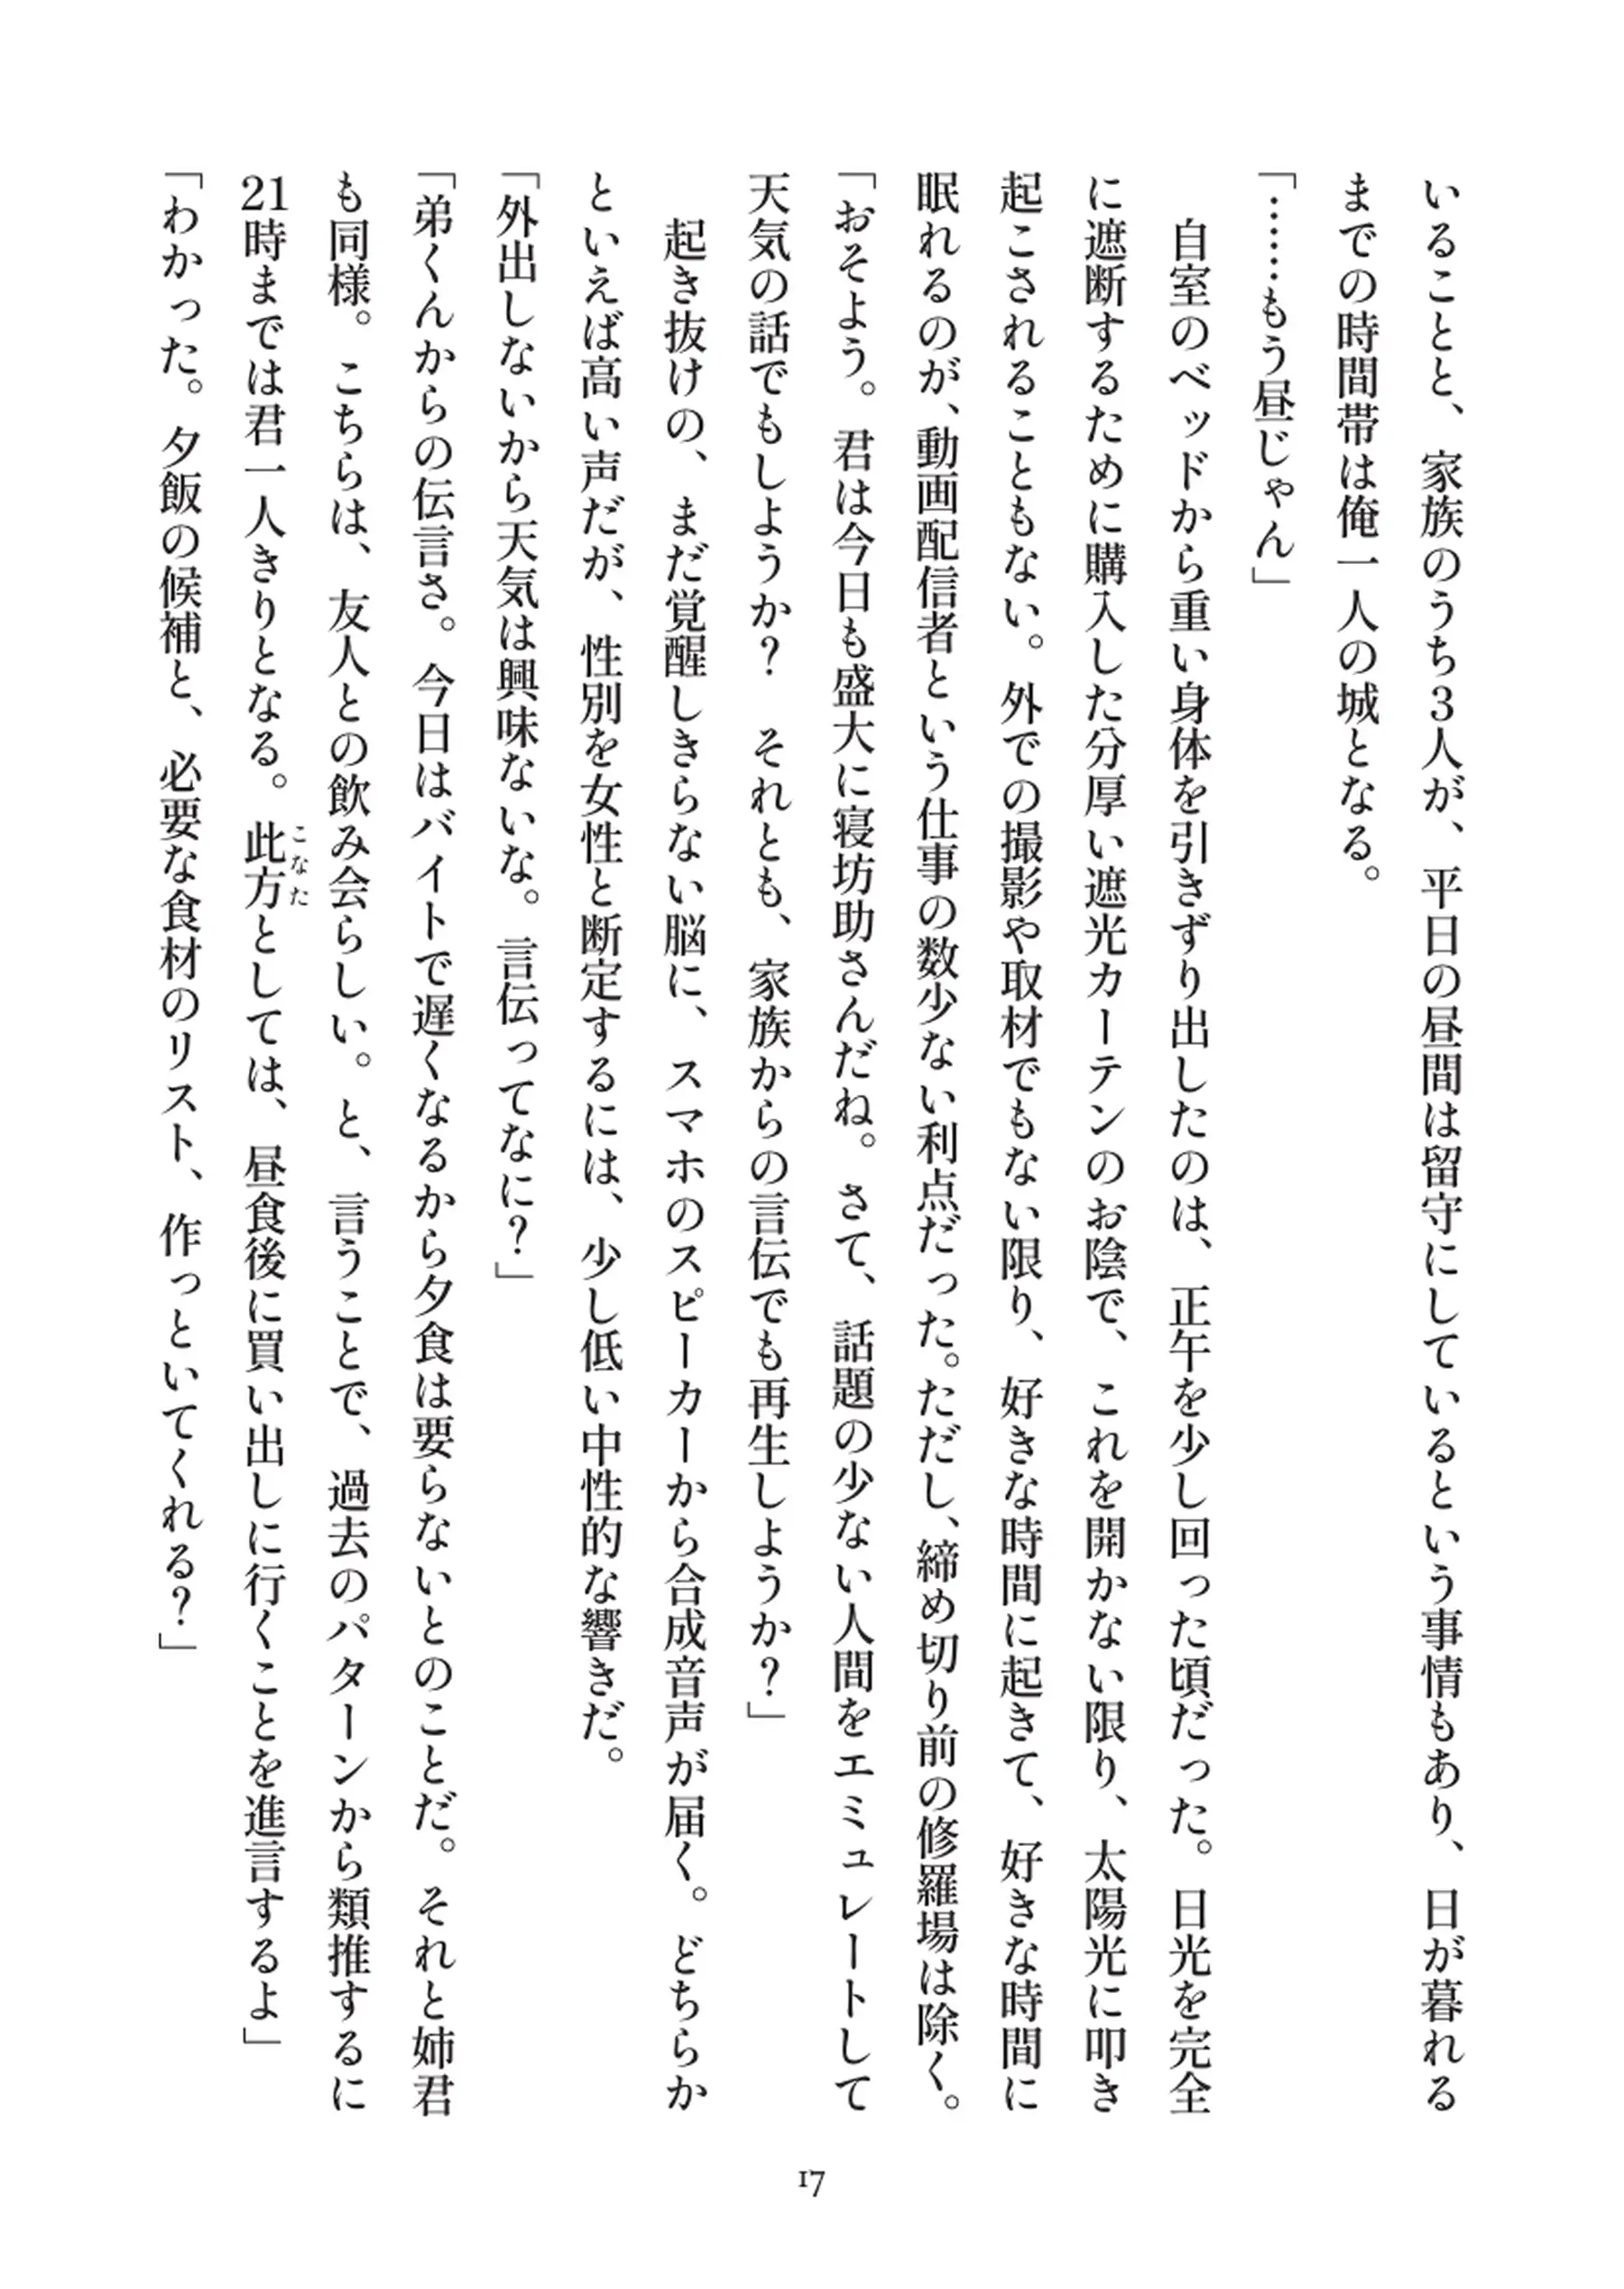 いることと、家族のうち3人が、平日の昼間は留守にしているという事情もあり、日が暮れる
までの時間帯は俺一人の城となる。
「……もう昼じゃん」
　自室のベッドから重い身体を引きずり出したのは、正午を少し回った頃だった。日光を完全
に遮断するために購入した分厚い遮光カーテンのお陰で、これを開かない限り、太陽光に叩き
起こされることもない。外での撮影や取材でもない限り、好きな時間に起きて、好きな時間に
眠れるのが、動画配信者という仕事の数少ない利点だった。ただし、締め切り前の修羅場は除く。
「おそよう。君は今日も盛大に寝坊助さんだね。さて、話題の少ない人間をエミュレートして
天気の話でもしようか？　それとも、家族からの言伝でも再生しようか？」
　起き抜けの、まだ覚醒しきらない脳に、スマホのスピーカーから合成音声が届く。どちらか
といえば高い声だが、性別を女性と断定するには、少し低い中性的な響きだ。
「外出しないから天気は興味ないな。言伝ってなに？」
「弟くんからの伝言さ。今日はバイトで遅くなるから夕食は要らないとのことだ。それと姉君
も同様。こちらは、友人との飲み会らしい。と、言うことで、過去のパターンから類推するに
21時までは君一人きりとなる。此方としては、昼食後に買い出しに行くことを進言するよ」
こなた
「わかった。夕飯の候補と、必要な食材のリスト、作っといてくれる？」
17